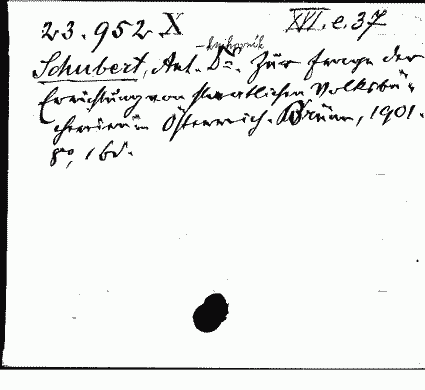 23.952 X XVI.e.37
- knihovník
Schubert, Ant. Dr. Zur Frage der
Errichtung von staatlichen Volksbü-
chereien in Österreich. Brünn, 1901.
8°, 1 bd.